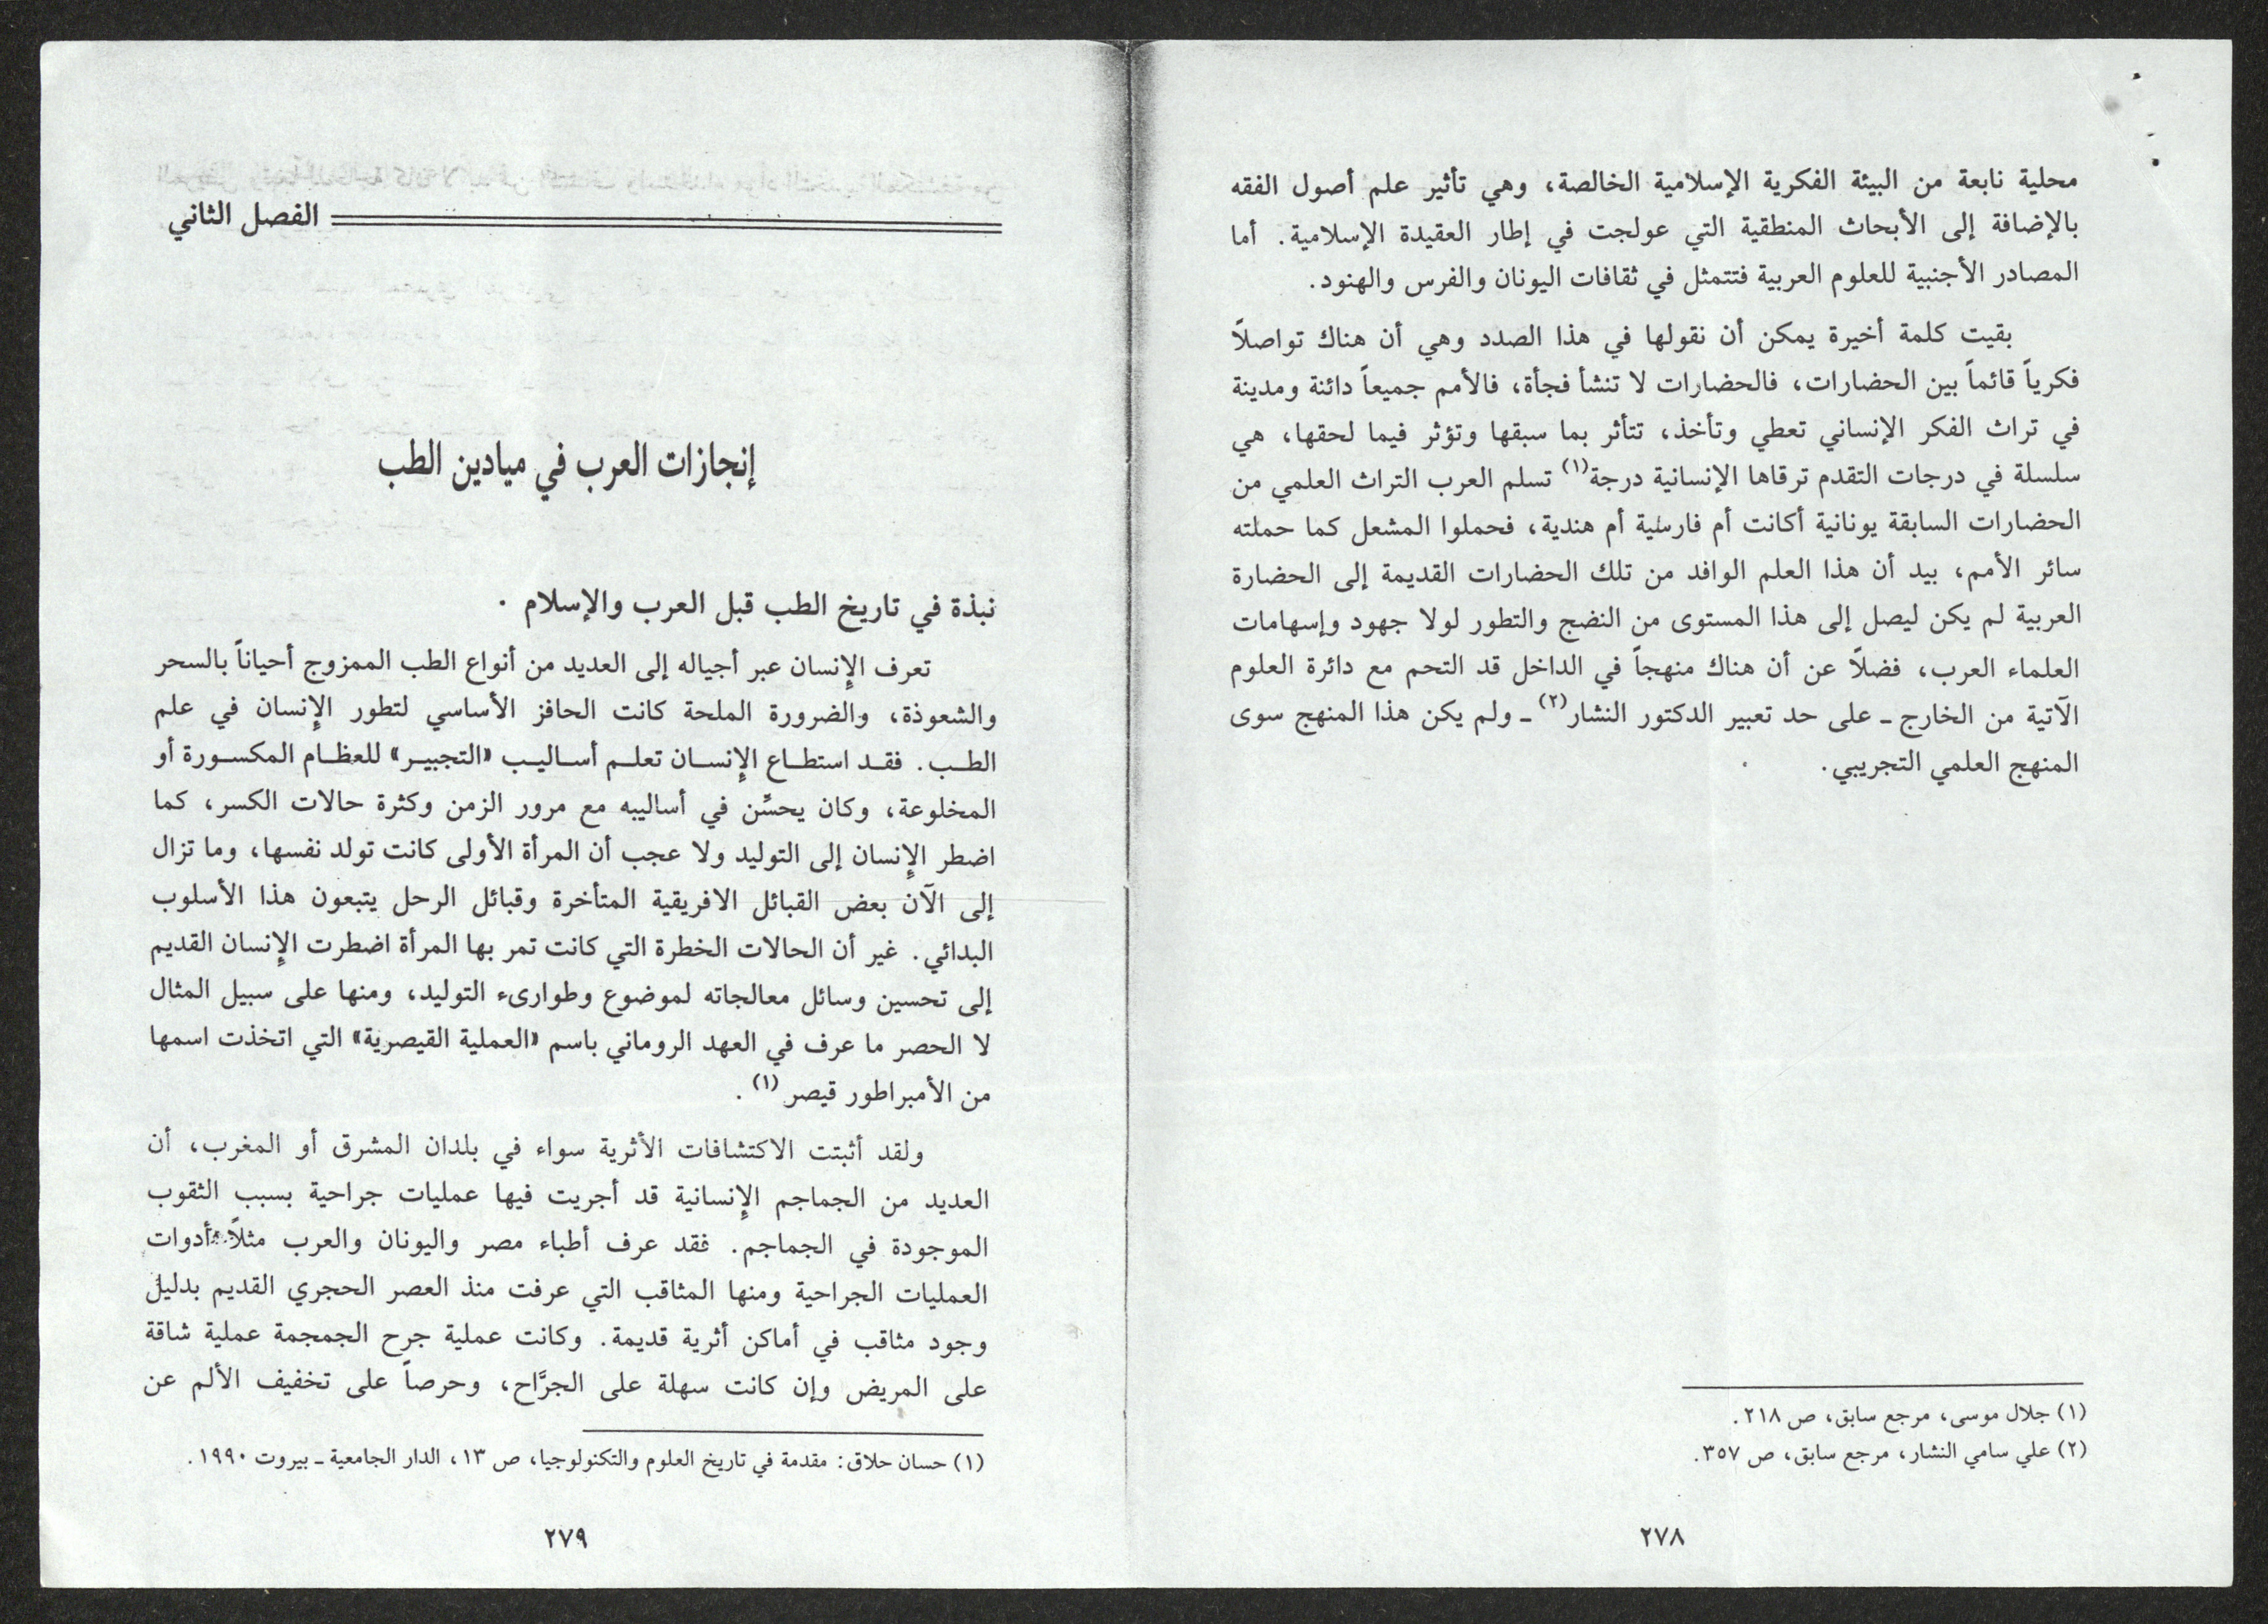 محلية نابعة من البيئة الفكرية الإسلامية الخالصة، وهي تأثير علم أصول الفقه
بالإضافة إلى الأبحاث المنطقية التي عولجت في إطار العقيدة الإسلامية. أما
المصادر الأجنبية للعلوم العربية فتتمثل في ثقافات اليونان والفرس والهنود.
بقيت كلمة أخيرة يمكن أن نقولها في هذا الصدد وهي أن هناك تواصلاً
فكرياً قائماً بين الحضارات، فالحضارات لا تنشأ فجأة، فالأمم جميعاً دائنة ومدينة
في تراث الفكر الإنساني تعطي وتأخذ، تتأثر بما سبقها وتؤثر فيما لحقها، هي
سلسلة في درجات التقدم ترقاها الإنسانية درجة(١) تسلم العرب التراث العلمي من
الحضارات السابقة يونانية أكانت أم فارسية أم هندية، فحملوا المشعل كما حملته
سائر الأمم، بيد أن هذا العلم الوافد من تلك الحضارات القديمة إلى الحضارة
العربية لم يكن ليصل إلى هذا المستوى من النضج والتطور لولا جهود وإسهامات
العلماء العرب، فضلاً عن أن هناك منهجاً في الداخل قد التحم مع دائرة العلوم
الآتية من الخارج ـ على حد تعبير الدكتور النشار(٢) ـ ولم يكن هذا المنهج سوى
المنهج العلمي التجريبي.
(١) جلال موسى، مرجع سابق، ص ٢١٨.
(٢) علي سامي النشار، مرجع سابق، ص ٣٥٧.
٢٧٨
الفصل الثاني
إنجازات العرب في ميادين الطب
نبذة في تاريخ الطب قبل العرب والإسلام .
تعرف الإنسان عبر أجياله إلى العديد من أنواع الطب الممزوج أحياناً بالسحر
والشعوذة، والضرورة الملحة كانت الحافز الأساسي لتطور الإنسان في علم
الطب. فقد استطاع الإنسان تعلم أساليب «التجبير» للعظام المكسورة أو
المخلوعة، وكان يحسِّن في أساليبه مع مرور الزمن وكثرة حالات الكسر، كما
اضطر الإنسان إلى التوليد ولا عجب أن المرأة الأولى كانت تولد نفسها، وما تزال
إلى الآن بعض القبائل الافريقية المتأخرة وقبائل الرحل يتبعون هذا الأسلوب
البدائي. غير أن الحالات الخطرة التي كانت تمر بها المرأة اضطرت الإنسان القديم
إلى تحسين وسائل معالجاته لموضوع وطوارىء التوليد، ومنها على سبيل المثال
لا الحصر ما عرف في العهد الروماني باسم «العملية القيصرية» التي اتخذت اسمها
من الأمبراطور قيصر (١).
ولقد أثبتت الاكتشافات الأثرية سواء في بلدان المشرق أو المغرب، أن
العديد من الجماجم الإنسانية قد أجريت فيها عمليات جراحية بسبب الثقوب
الموجودة في الجماجم. فقد عرف أطباء مصر واليونان والعرب مثلاً أدوات
العمليات الجراحية ومنها المثاقب التي عرفت منذ العصر الحجري القديم بدليل
وجود مثاقب في أماكن أثرية قديمة. وكانت عملية جرح الجمجمة عملية شاقة
على المريض وإن كانت سهلة على الجرَّاح، وحرصاً على تخفيف الألم عن
(١) حسان حلاق: مقدمة في تاريخ العلوم والتكنولوجيا، ص ١٣، الدار الجامعية ـ بيروت ١٩٩٠.
٢٧٩